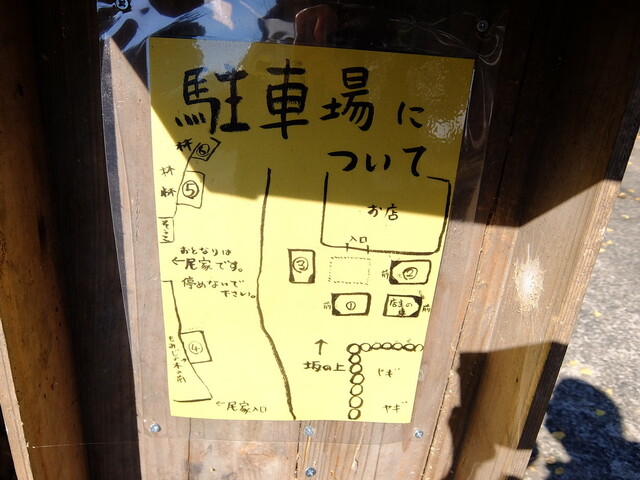 駐車場に
ついて
林
⑥
林
林
⑤
そうこ
おとなりは
←尾家です。
停めないで
下さい。
お店
入口
③
前
②
前
①
店主の
車
前
④
もみじの木の前
↑
坂の上
ヤギ
ヤギ
←尾家入口